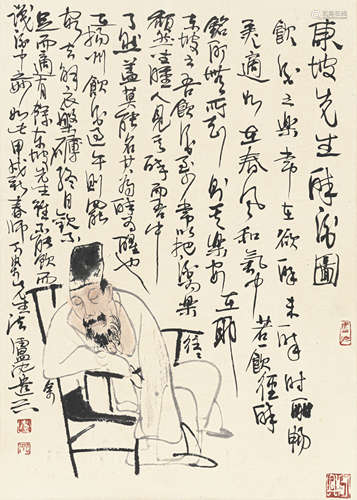 東坡先生醉酒圖
飲酒之樂常在欲醉未醉時酣暢
美適如在春風和氣中若飲徑醉
酩酊無所知則其樂安在耶
東坡云吾飲酒至少常以把酒為樂往往
頹然坐睡人見其醉而吾中
了然蓋莫能名其為醉為醒也
在揚州飲酒過午則罷
客去解衣槃礴終日歡不
足而適有餘東坡先生雖不能飲而
識酒中趣如此甲戌新春師丁先生法盧沉